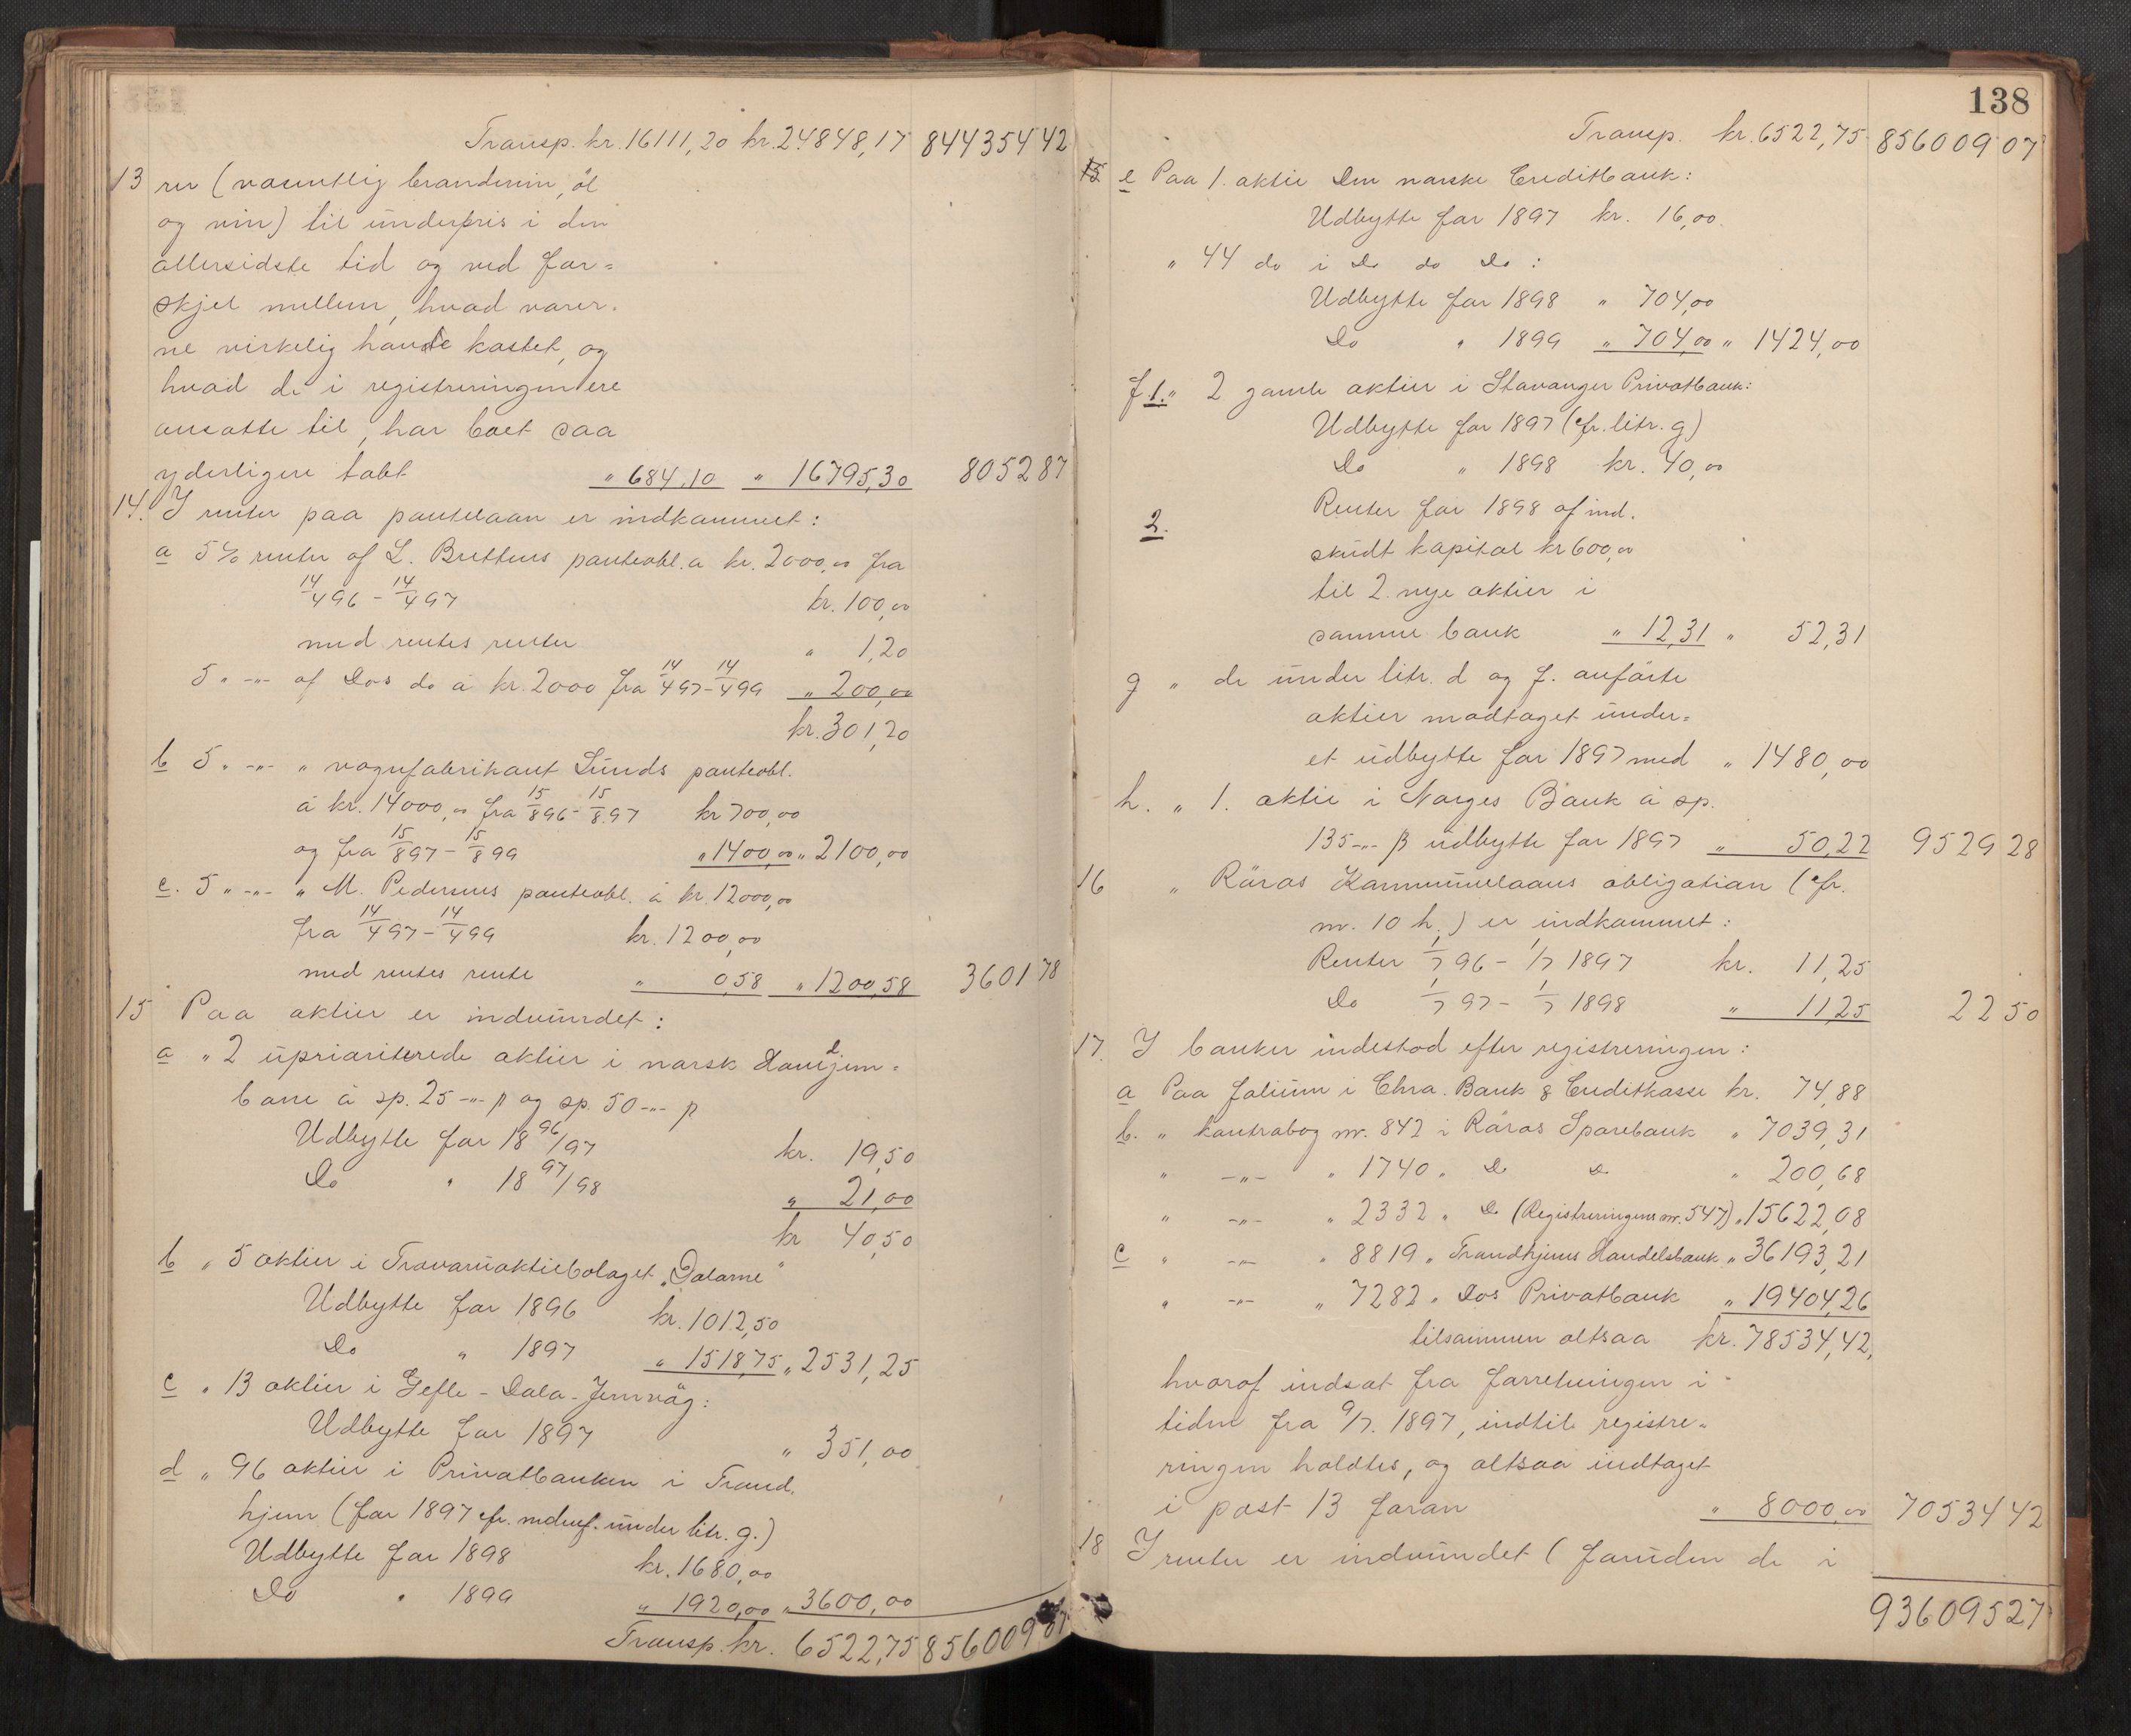 Transp. kr. 16111,20 kr. 24848,17 844354 42
13 rer (væsentlig brændevin, öl
og vin) til underpris i den
allersidste tid og ved for=
skjel mellem, hvad varer.
ne virkelig havde kostet, og
hvad de i registreringen ere
ansatte til, har boet saa
yderligere tabt " 684,10 " 16795,30 8052 87
14. I renter paa pantelaan er indkommet:
a 5 % renter af L. Brettens panteobl. a kr. 2000,00 fra
14/4 96 - 14/4 97 kr. 100,00
med rentes renter " 1,20
5 " -"- af Dos do á kr. 2000 fra 14/4 97 - 14/4 99 " 200,00
kr. 301,20
b 5 " -"- " vognfabrikant Lunds panteobl.
á kr. 14000,00 fra 15/8 96 - 15/8 97 kr 700,00
og fra 15/8 97 - 15/8 99 " 1400,00 " 2100,00
c. 5 " -"- " M. Pedersens panteobl. á kr. 12000,00
fra 14/4 97 - 14/4 99 kr. 1200,00
med rentes rente " 0,58 " 1200,58 3601 78
15 Paa aktier er indvundet:
a " 2 upriariterede aktier i norsk Hovedjern=
bane á sp. 25 -"- β og sp. 50 -"- β
Udbytte for 18 96/97 kr. 19,50
Do " 18 97/98 " 21,00
kr 40,50
b " 5 aktier i Travaruaktiebolaget "Dalarne"
Udbytte for 1896 kr. 1012,50
Do " 1897 " 1518,75 " 2531,25
c " 13 aktier i Gefle - Dala - Jernväg:
Udbytte for 1897 " 351,00
d " 96 aktier i Privatbanken i Trond.
hjem (for 1897 cfr. nedenf. under litr. g.)
Udbytte for 1898 kr. 1680,00
Do " 1899 " 1920,00 " 3600,00
Transp. kr. 6522,75 856009 07
138
Transp. kr. 6522,75 856009 07
15 e Paa 1. aktie Den norske Creditbank:
Udbytte for 1897 kr. 16,00
" 44 do i Do do Do:
Udbytte for 1898 " 704,00
Do " 1899 " 704,00 " 1424,00
f 1. " 2 gamle aktier i Stavanger Privatbank:
Udbytte for 1897 (cfr. litr. g)
Do " 1898 kr. 40,00
2. Renter for 1898 af ind.
skudt kapital kr 600,00
til 2. nye aktier i
samme bank " 12,31 " 52,31
g " de under litr. d og f. anförte
aktier modtaget under=
et udbytte for 1897 med " 1480,00
h. " 1. aktie i Norges Bank á sp.
135 -"- β udbytte for 1897 " 50,22 9529 28
16 " Röros Kommunelaans obligation (cfr.
nr. 10 h.) er indkommet:
Renter 1/7 96 - 1/7 1897 kr. 11,25
Do 1/7 97 - 1/7 1898 " 11,25 22 50
17. I banker indestod efter registreringen:
a Paa folium i Chra. Bank & Creditkasse kr. 74,88
b. " kontrabog nr. 842 i Röros Sparebank " 7039,31
" -"- " 1740 " Do Do " 200,68
" -"- " 2332 " Do (Registreringens nr. 547) " 15622,08
c " -"- " 8819 " Trondhjems Handelsbank " 36193,21
" -"- " 7282 " Dos Privatbank " 19404,26
tilsammen altsaa kr. 78534,42,
hvoraf indsat fra forretningen i
tiden fra 9/7. 1897, indtil registre=
ringen holdtes, og altsaa indtaget
i post 13 foran " 8000,00 70534 42
18 I renter er indvundet (foruden de i
936095 27